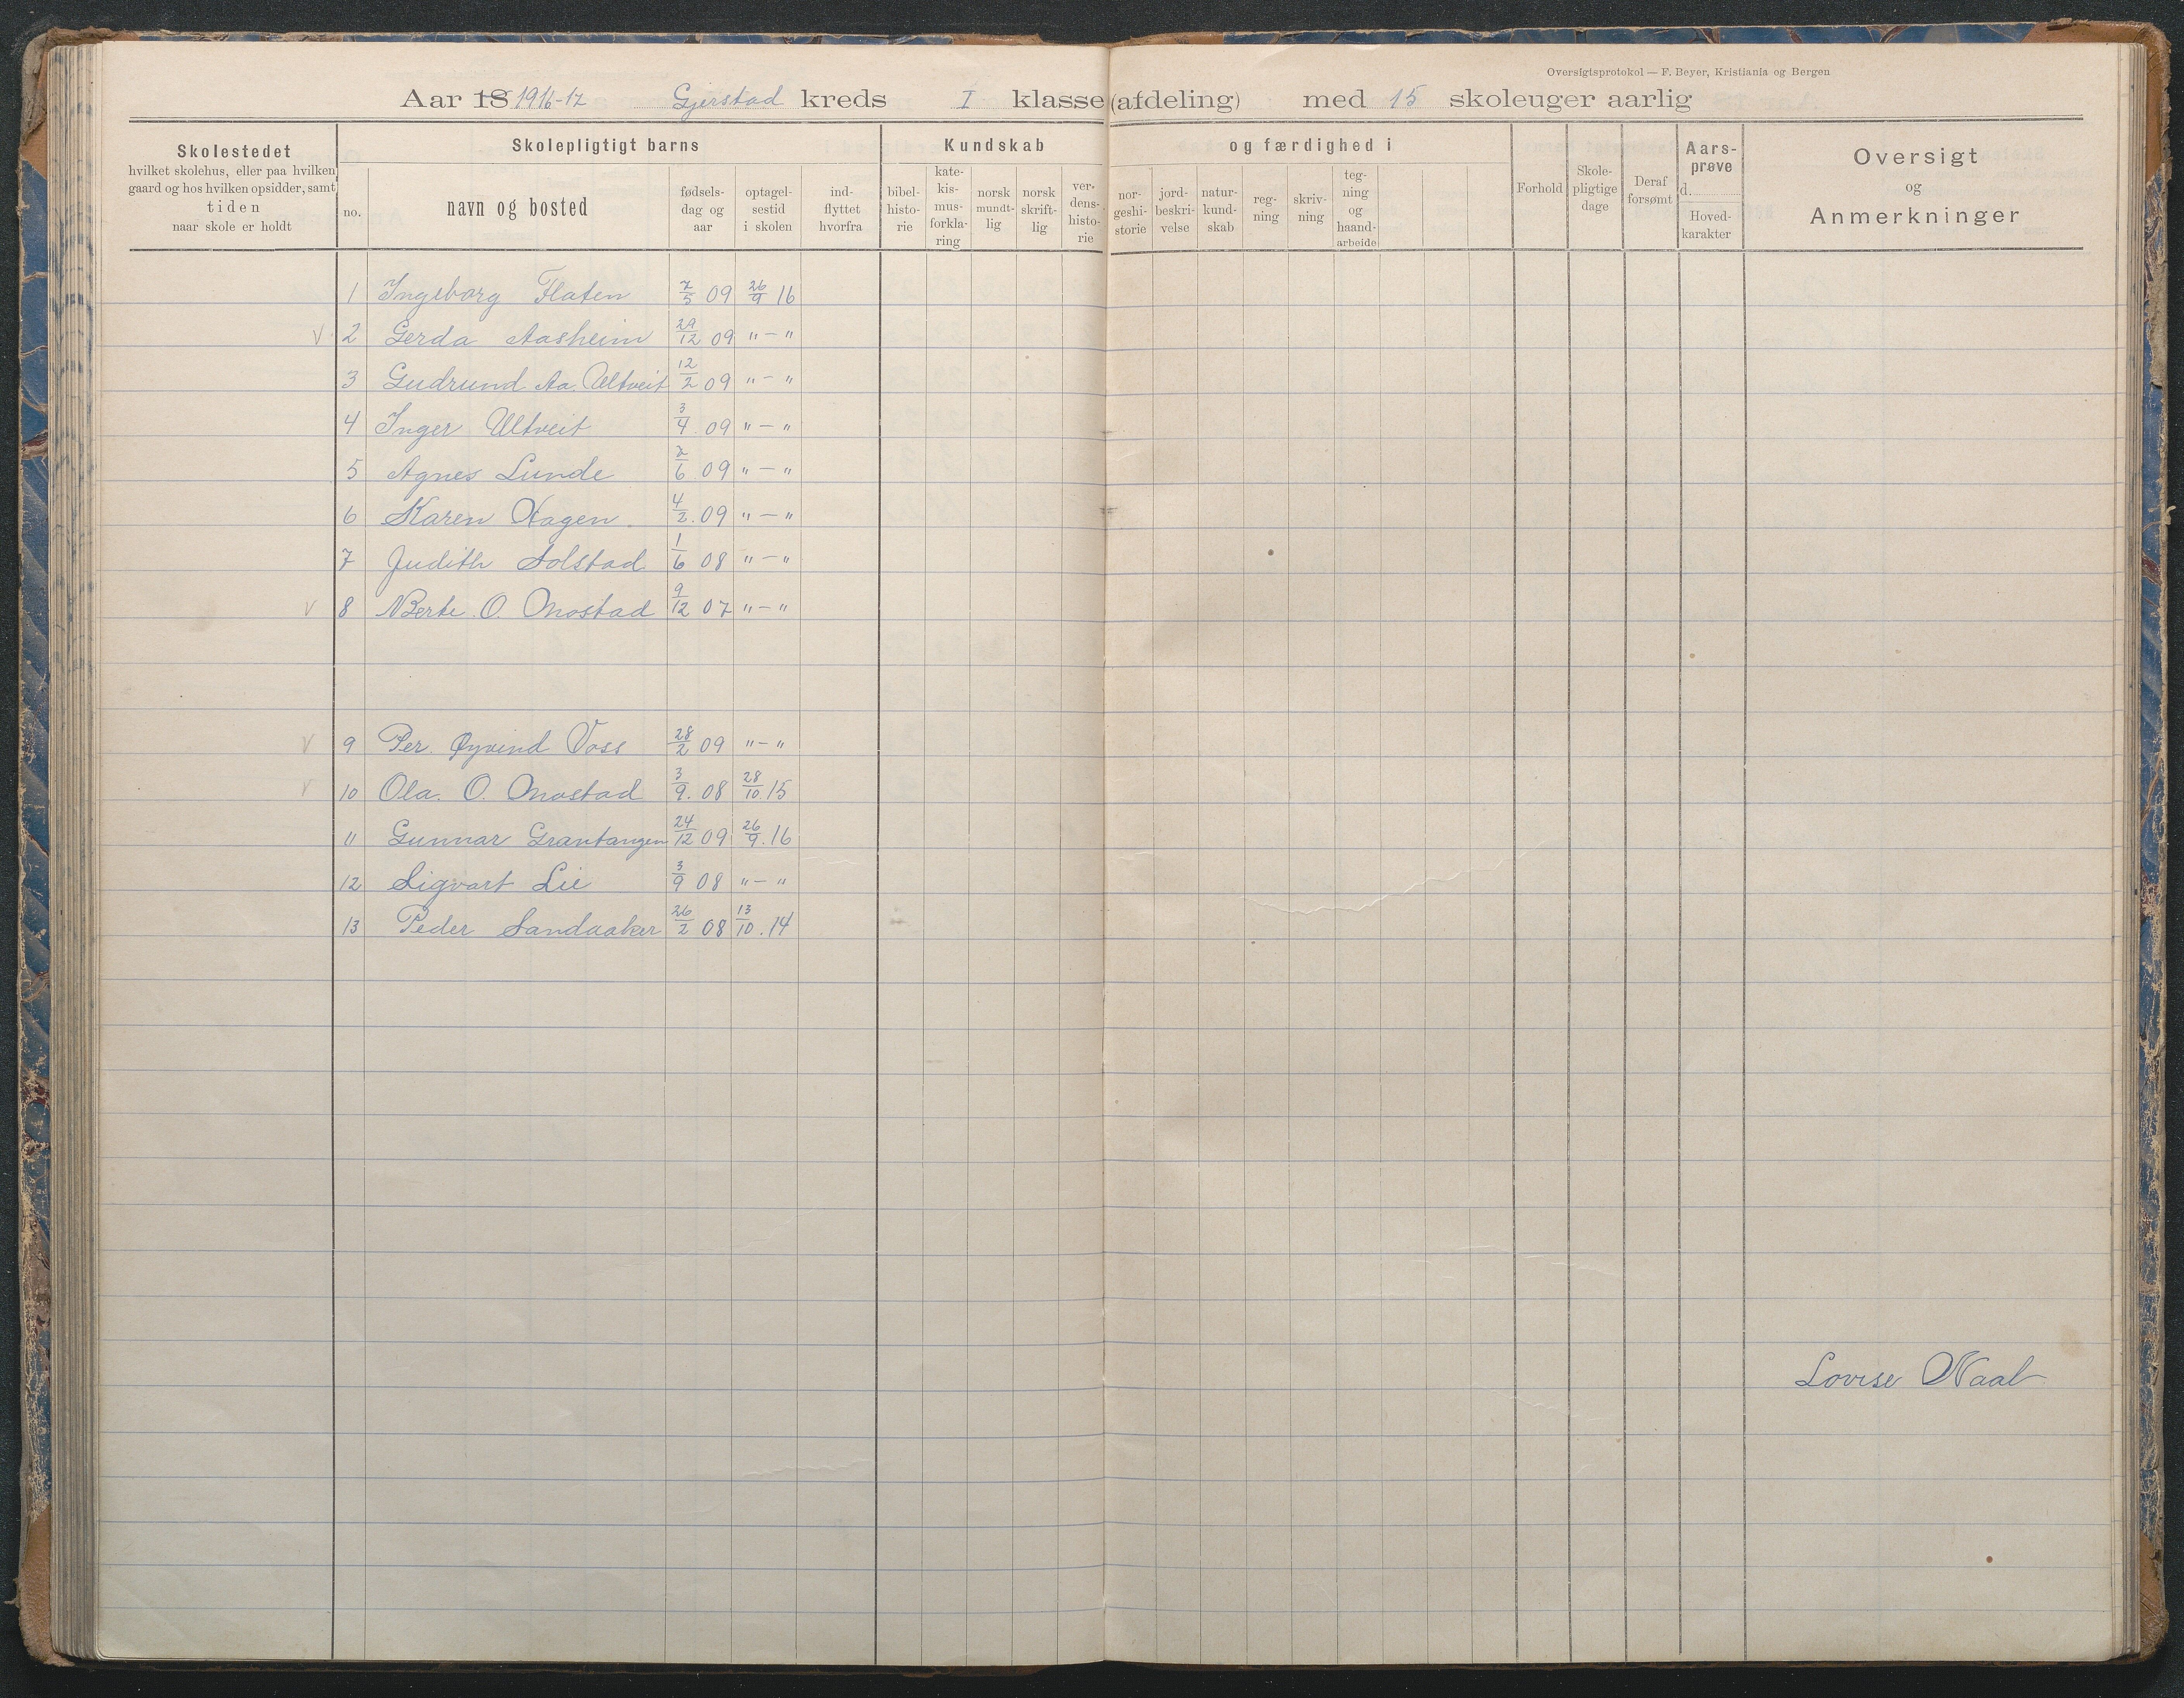 Oversigtsprotokol — F. Beyer, Kristiania og Bergen
Aar 18 1916-17 Gjerstad kreds I klasse (afdeling) med 15 skoleuger aarlig
Skolestedet
hvilket skolehus, eller paa hvilken
gaard og hos hvilken opsidder, samt
tiden
naar skole er holdt
Skolepligtigt barns
no.
navn og bosted
fødsels-
dag og
aar
optagel-
sestid
i skolen
ind-
flyttet
hvorfra
Kundskab og færdighed i
bibel-
histo-
rie
kate-
kis-
mus-
forkla-
ring
norsk
mundt-
lig
norsk
skrift-
lig
ver-
dens-
histo-
rie
nor-
geshi-
storie
jord-
beskri-
velse
natur-
kund-
skab
reg-
ning
skriv-
ning
teg-
ning
og
haand-
arbeide
Forhold
Skole-
pligtige
dage
Deraf
forsømt
Aars-
prøve
d.
Hoved-
karakter
Oversigt
og
Anmerkninger
1 Ingeborg Flaten 7/5 09 26/9 16
V 2 Gerda Aasheim 29/12 09 " — "
3 Gudrund Aa. Ultveit 12/2 09 " — "
4 Inger Ultveit 3/4 09 " — "
5 Agnes Lunde 2/6 09 " — "
6 Karen Hagen. 4/2. 09 " — "
7 Judith Solstad 1/6 08 " — "
V 8 Berte. O. Mostad 9/12 07 " — "
V 9 Per. Øyvind Voss 28/2 09 " — "
V 10 Ola. O. Mostad 3/9. 08 28/10.15
11 Gunnar Grantangen 24/12 09 26/9.16
12 Sigvart Lie 3/9 08 " — "
13 Peder Sandaaker 26/2 08 13/10.14
Lovise